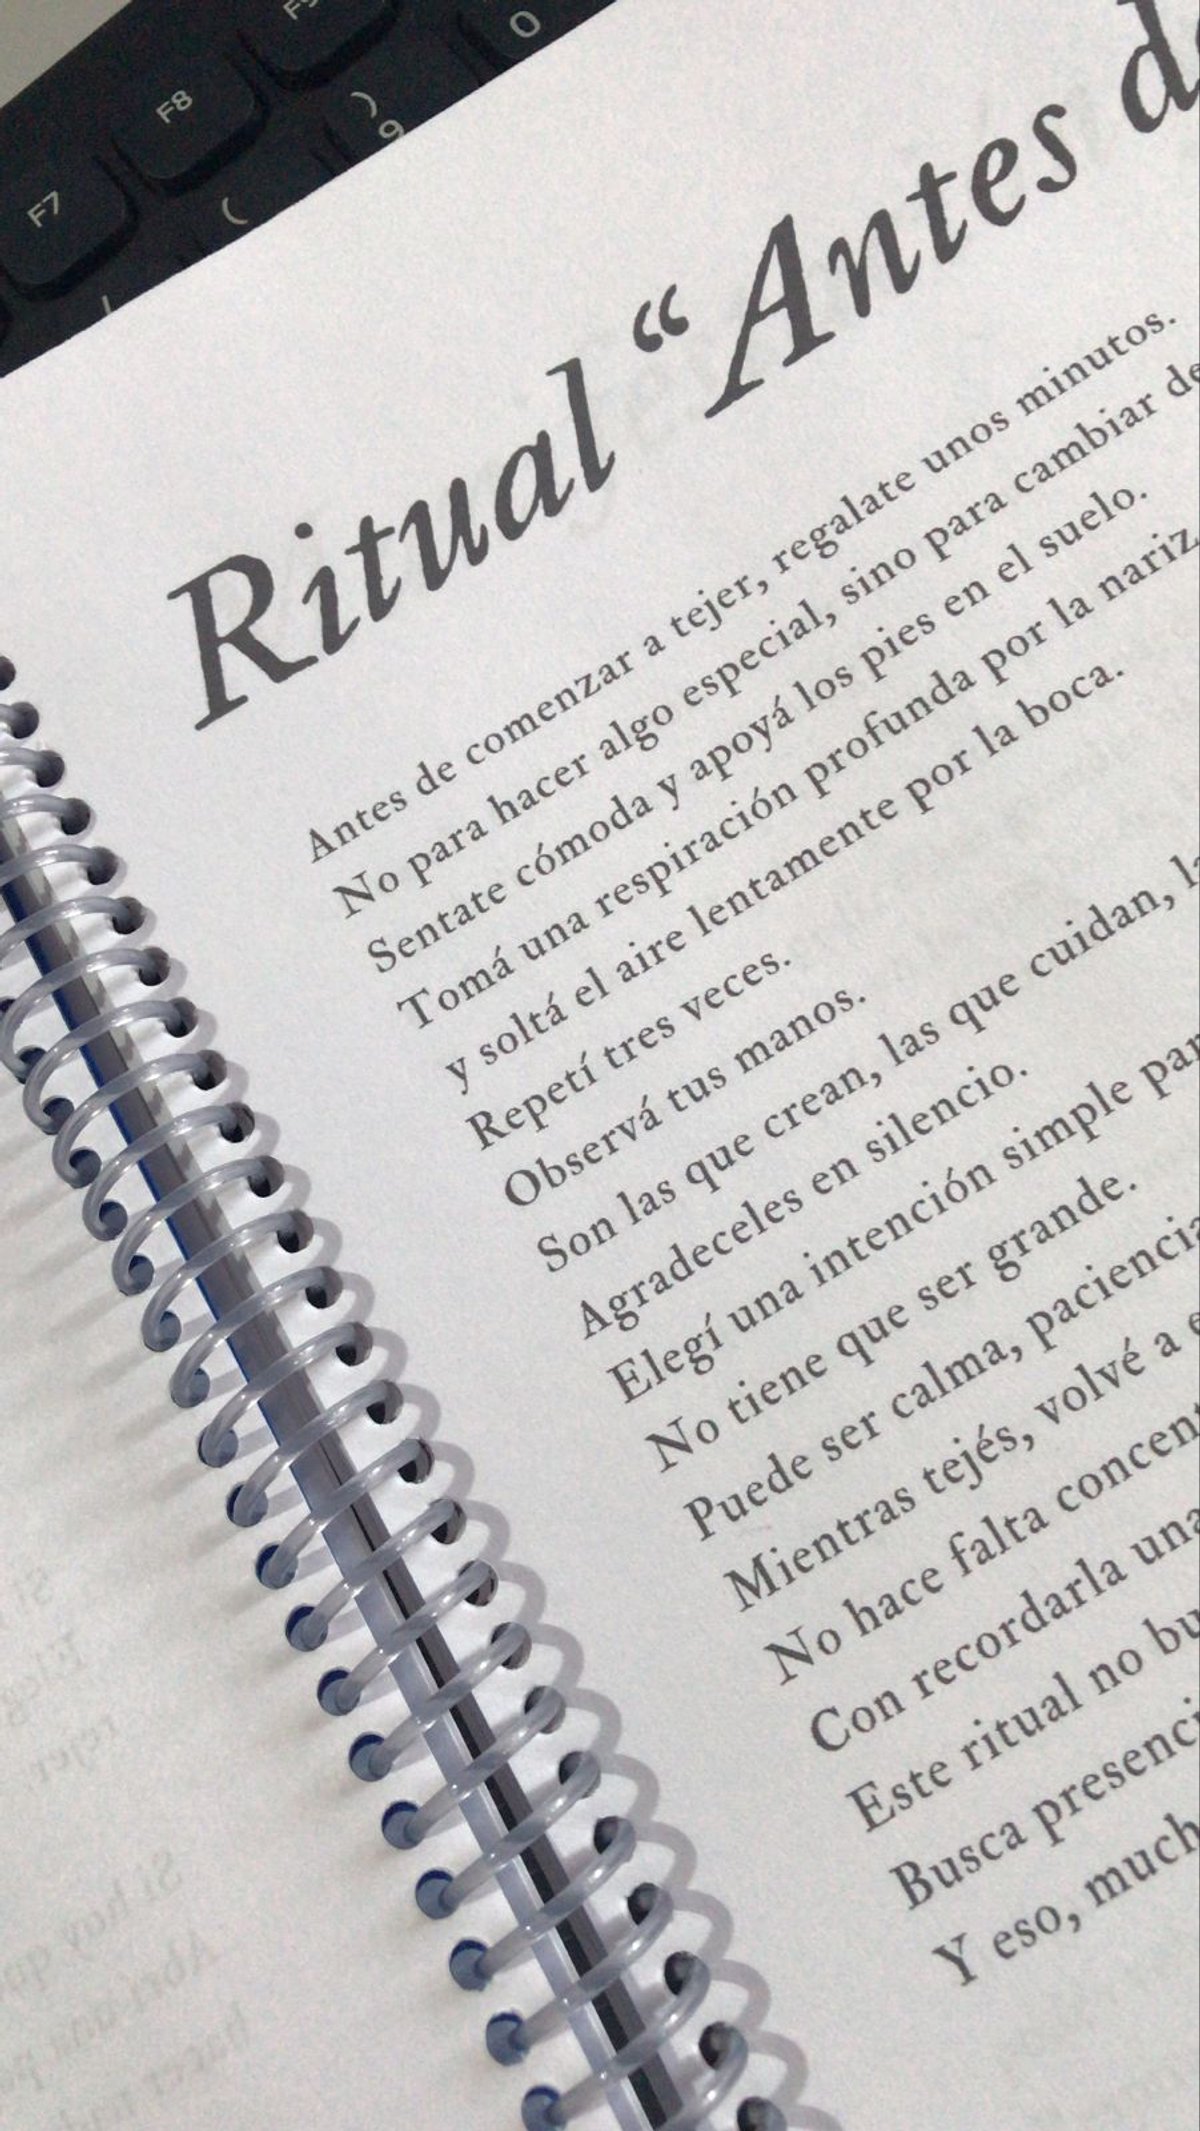 F7
F8
0
)
9
(
Ritual “Antes
Antes de comenzar a tejer, regalate unos minutos.
No para hacer algo especial, sino para cambiar de
Sentate cómoda y apoyá los pies en el suelo.
Tomá una respiración profunda por la nariz
y soltá el aire lentamente por la boca.
Repetí tres veces.
Observá tus manos.
Son las que crean, las que cuidan,
Agradeceles en silencio.
Elegí una intención simple
No tiene que ser grande.
Puede ser calma, paciencia
Mientras tejés, volvé a
No hace falta
Con recordarla una
Este ritual no
Busca
Y eso,